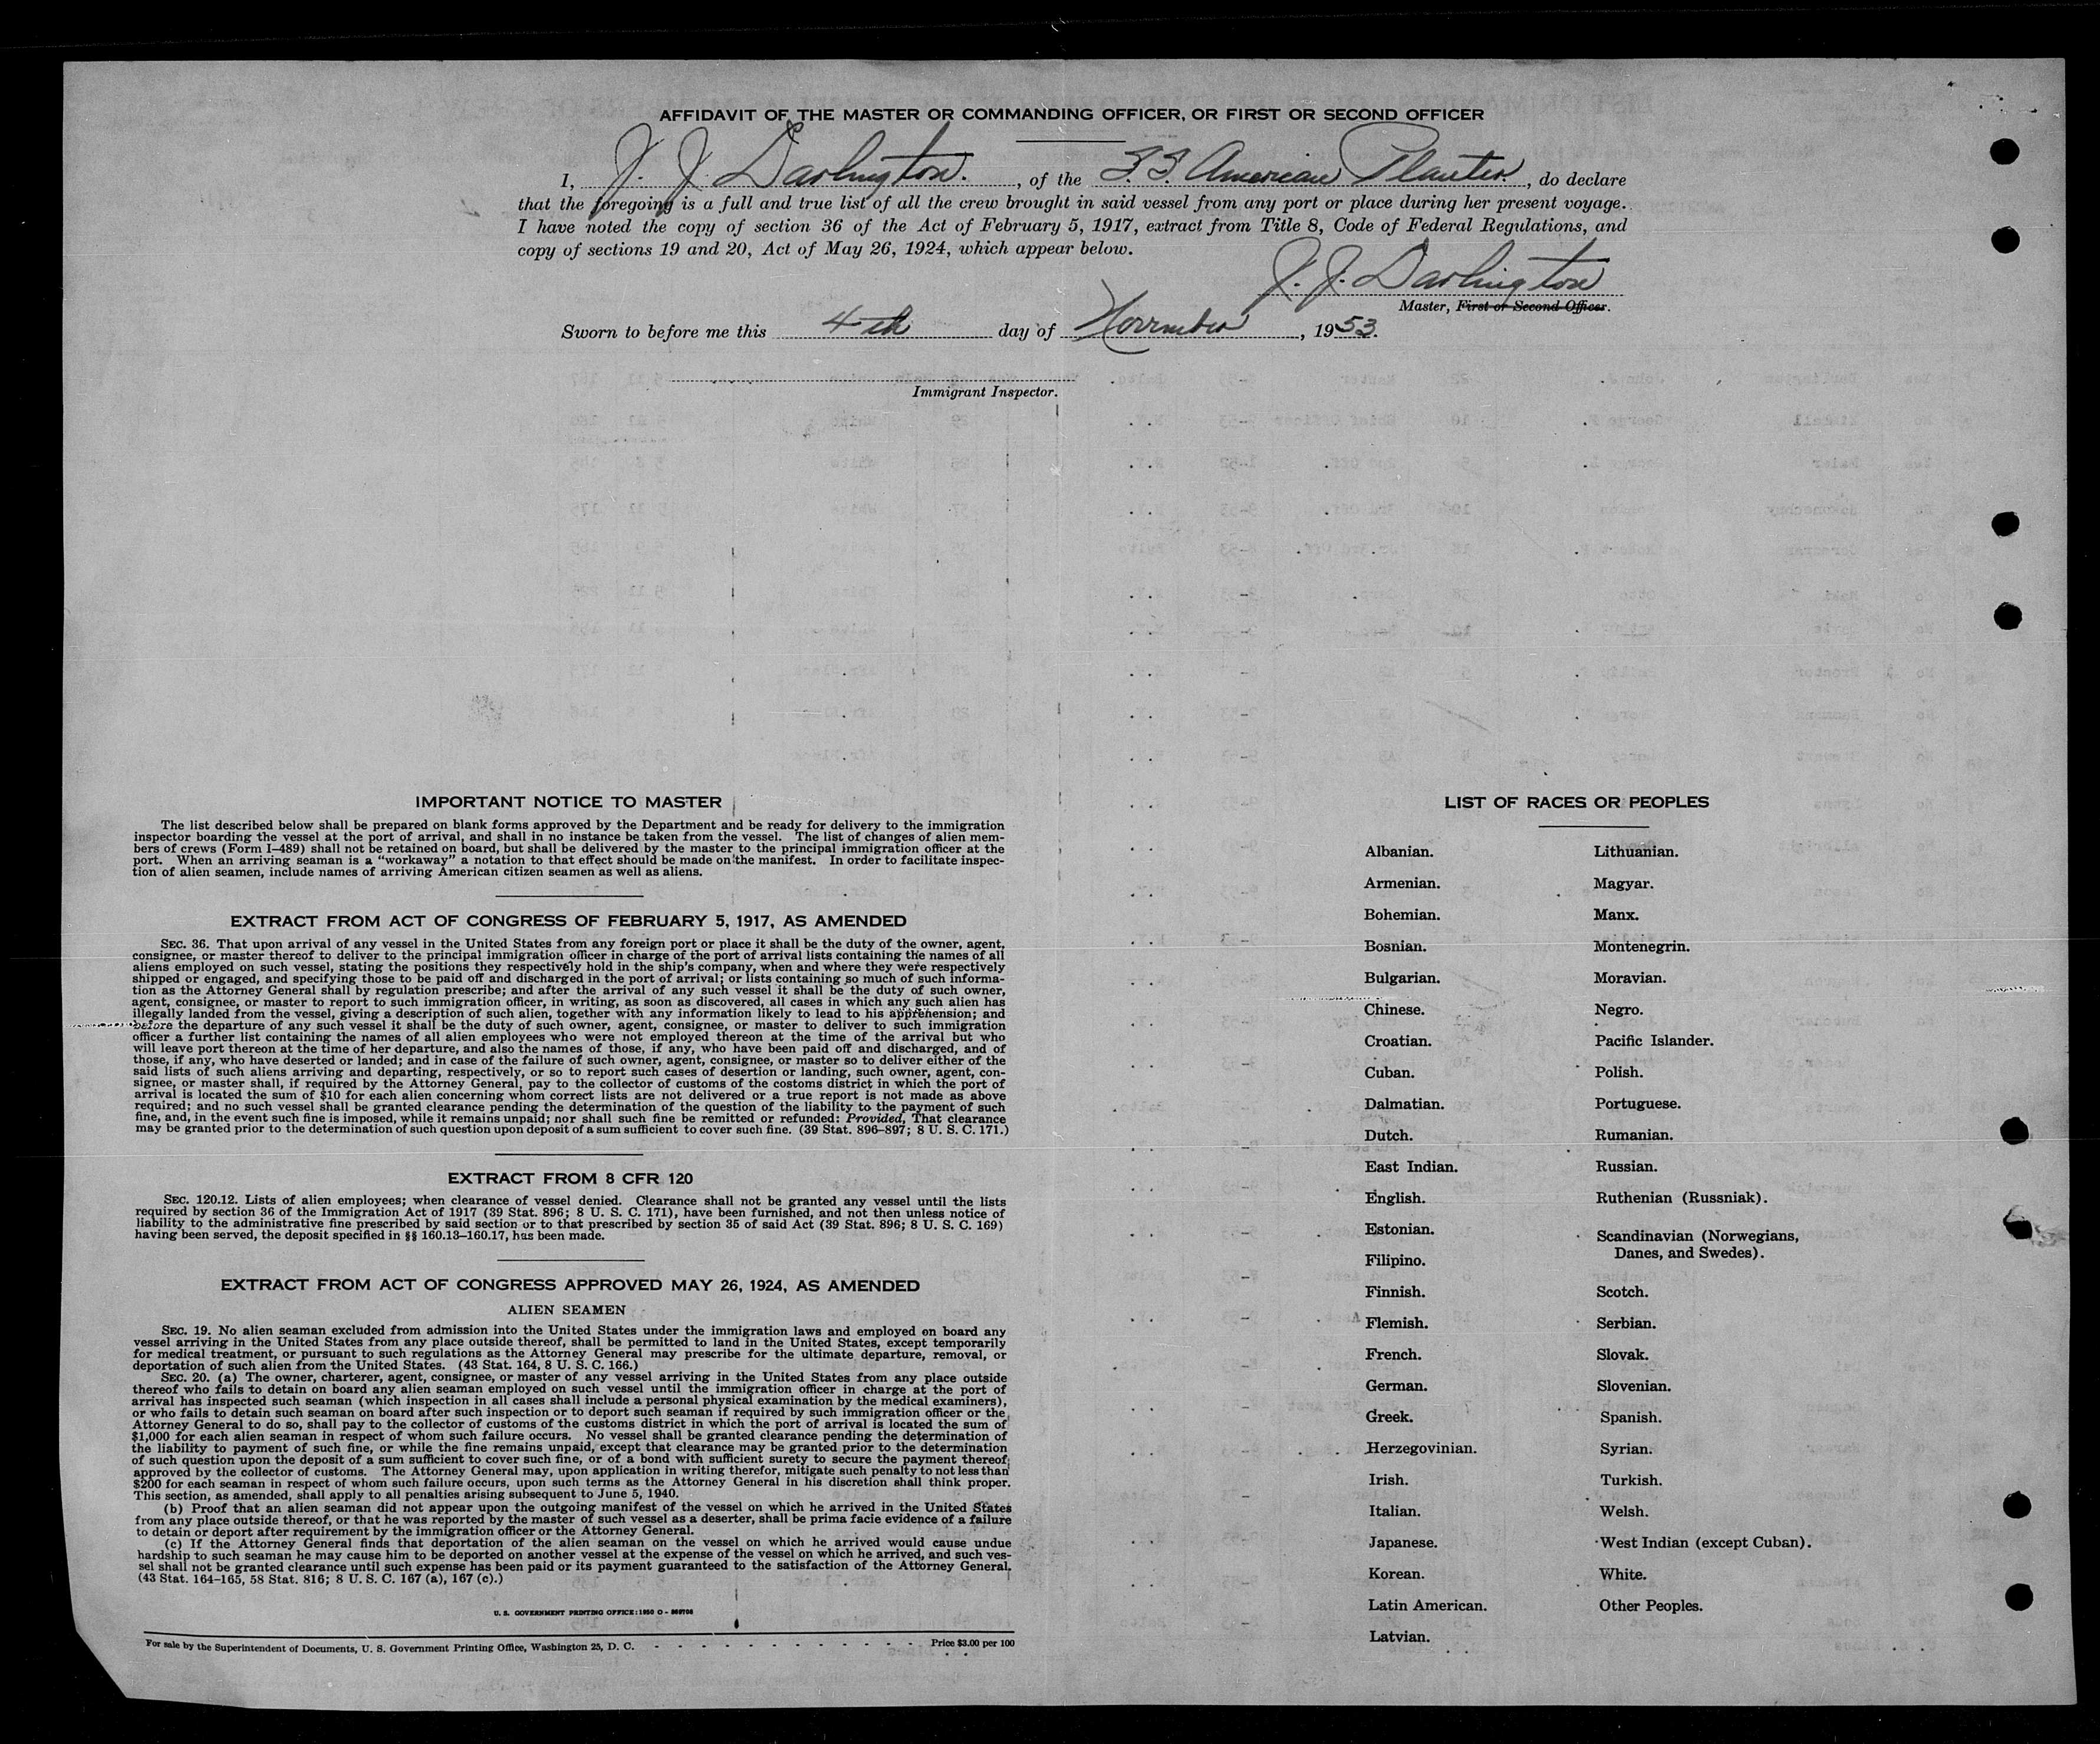 AFFIDAVIT OF THE MASTER OR COMMANDING OFFICER, OR FIRST OR SECOND OFFICER
I, J. J. Darlington. , of the S.S. American Planter , do declare
that the foregoing is a full and true list of all the crew brought in said vessel from any port or place during her present voyage.
I have noted the copy of section 36 of the Act of February 5, 1917, extract from Title 8, Code of Federal Regulations, and
copy of sections 19 and 20, Act of May 26, 1924, which appear below.
J. J. Darlington
Master, First or Second Officer.
Sworn to before me this 4th day of November , 1953.
Immigrant Inspector.
IMPORTANT NOTICE TO MASTER
The list described below shall be prepared on blank forms approved by the Department and be ready for delivery to the immigration
inspector boarding the vessel at the port of arrival, and shall in no instance be taken from the vessel. The list of changes of alien mem-
bers of crews (Form I–489) shall not be retained on board, but shall be delivered by the master to the principal immigration officer at the
port. When an arriving seaman is a “workaway” a notation to that effect should be made on the manifest. In order to facilitate inspec-
tion of alien seamen, include names of arriving American citizen seamen as well as aliens.
EXTRACT FROM ACT OF CONGRESS OF FEBRUARY 5, 1917, AS AMENDED
SEC. 36. That upon arrival of any vessel in the United States from any foreign port or place it shall be the duty of the owner, agent,
consignee, or master thereof to deliver to the principal immigration officer in charge of the port of arrival lists containing the names of all
aliens employed on such vessel, stating the positions they respectively hold in the ship's company, when and where they were respectively
shipped or engaged, and specifying those to be paid off and discharged in the port of arrival; or lists containing so much of such informa-
tion as the Attorney General shall by regulation prescribe; and after the arrival of any such vessel it shall be the duty of such owner,
agent, consignee, or master to report to such immigration officer, in writing, as soon as discovered, all cases in which any such alien has
illegally landed from the vessel, giving a description of such alien, together with any information likely to lead to his apprehension; and
before the departure of any such vessel it shall be the duty of such owner, agent, consignee, or master to deliver to such immigration
officer a further list containing the names of all alien employees who were not employed thereon at the time of the arrival but who
will leave port thereon at the time of her departure, and also the names of those, if any, who have been paid off and discharged, and of
those, if any, who have deserted or landed; and in case of the failure of such owner, agent, consignee, or master so to deliver either of the
said lists of such aliens arriving and departing, respectively, or so to report such cases of desertion or landing, such owner, agent, con-
signee, or master shall, if required by the Attorney General, pay to the collector of customs of the costoms district in which the port of
arrival is located the sum of $10 for each alien concerning whom correct lists are not delivered or a true report is not made as above
required; and no such vessel shall be granted clearance pending the determination of the question of the liability to the payment of such
fine, and, in the event such fine is imposed, while it remains unpaid; nor shall such fine be remitted or refunded: Provided, That clearance
may be granted prior to the determination of such question upon deposit of a sum sufficient to cover such fine. (39 Stat. 896–897; 8 U. S. C. 171.)
EXTRACT FROM 8 CFR 120
SEC. 120.12. Lists of alien employees; when clearance of vessel denied. Clearance shall not be granted any vessel until the lists
required by section 36 of the Immigration Act of 1917 (39 Stat. 896; 8 U. S. C. 171), have been furnished, and not then unless notice of
liability to the administrative fine prescribed by said section or to that prescribed by section 35 of said Act (39 Stat. 896; 8 U. S. C. 169)
having been served, the deposit specified in §§ 160.13–160.17, has been made.
EXTRACT FROM ACT OF CONGRESS APPROVED MAY 26, 1924, AS AMENDED
ALIEN SEAMEN
SEC. 19. No alien seaman excluded from admission into the United States under the immigration laws and employed on board any
vessel arriving in the United States from any place outside thereof, shall be permitted to land in the United States, except temporarily
for medical treatment, or pursuant to such regulations as the Attorney General may prescribe for the ultimate departure, removal, or
deportation of such alien from the United States. (43 Stat. 164, 8 U. S. C. 166.)
SEC. 20. (a) The owner, charterer, agent, consignee, or master of any vessel arriving in the United States from any place outside
thereof who fails to detain on board any alien seaman employed on such vessel until the immigration officer in charge at the port of
arrival has inspected such seaman (which inspection in all cases shall include a personal physical examination by the medical examiners),
or who fails to detain such seaman on board after such inspection or to deport such seaman if required by such immigration officer or the
Attorney General to do so, shall pay to the collector of customs of the customs district in which the port of arrival is located the sum of
$1,000 for each alien seaman in respect of whom such failure occurs. No vessel shall be granted clearance pending the determination of
the liability to payment of such fine, or while the fine remains unpaid, except that clearance may be granted prior to the determination
of such question upon the deposit of a sum sufficient to cover such fine, or of a bond with sufficient surety to secure the payment thereof
approved by the collector of customs. The Attorney General may, upon application in writing therefor, mitigate such penalty to not less than
$200 for each seaman in respect of whom such failure occurs, upon such terms as the Attorney General in his discretion shall think proper.
This section, as amended, shall apply to all penalties arising subsequent to June 5, 1940.
(b) Proof that an alien seaman did not appear upon the outgoing manifest of the vessel on which he arrived in the United States
from any place outside thereof, or that he was reported by the master of such vessel as a deserter, shall be prima facie evidence of a failure
to detain or deport after requirement by the immigration officer or the Attorney General.
(c) If the Attorney General finds that deportation of the alien seaman on the vessel on which he arrived would cause undue
hardship to such seaman he may cause him to be deported on another vessel at the expense of the vessel on which he arrived, and such ves-
sel shall not be granted clearance until such expense has been paid or its payment guaranteed to the satisfaction of the Attorney General.
(43 Stat. 164–165, 58 Stat. 816; 8 U. S. C. 167 (a), 167 (c).)
U. S. GOVERNMENT PRINTING OFFICE: 1950 O -
For sale by the Superintendent of Documents, U. S. Government Printing Office, Washington 25, D. C. - - - - - - - - - - - - Price $3.00 per 100
LIST OF RACES OR PEOPLES
Albanian.
Armenian.
Bohemian.
Bosnian.
Bulgarian.
Chinese.
Croatian.
Cuban.
Dalmatian.
Dutch.
East Indian.
English.
Estonian.
Filipino.
Finnish.
Flemish.
French.
German.
Greek.
Herzegovinian.
Irish.
Italian.
Japanese.
Korean.
Latin American.
Latvian.
Lithuanian.
Magyar.
Manx.
Montenegrin.
Moravian.
Negro.
Pacific Islander.
Polish.
Portuguese.
Rumanian.
Russian.
Ruthenian (Russniak).
Scandinavian (Norwegians,
Danes, and Swedes).
Scotch.
Serbian.
Slovak.
Slovenian.
Spanish.
Syrian.
Turkish.
Welsh.
West Indian (except Cuban).
White.
Other Peoples.